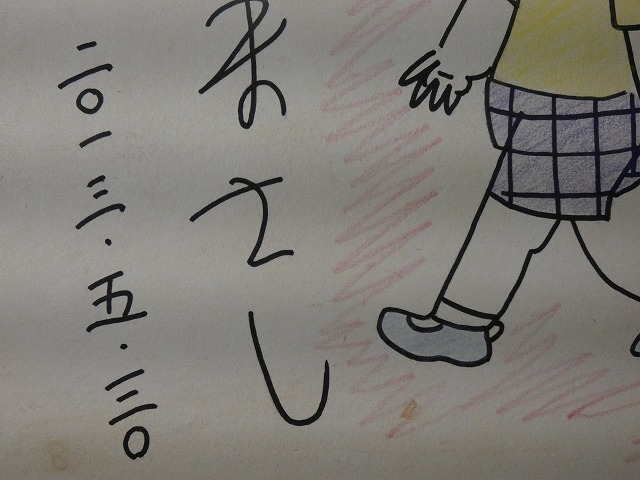 まさし
二〇一三・五・三〇